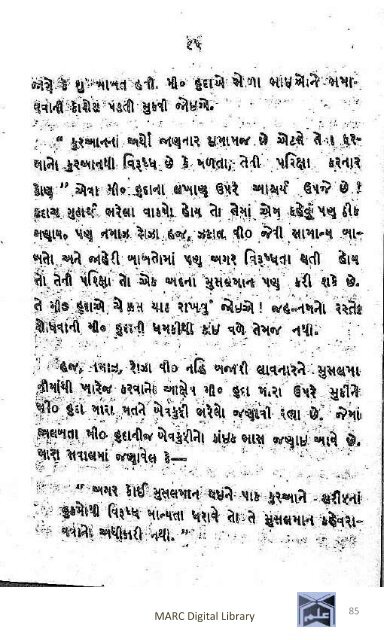 ૬૫
કે શું બાબત હતી. મી૦ હુદાએ એળા ભાઇઓને ભમા-
વવાની કોશેશ પડતી મુકવી જોઇએ.
" કુરઆનનાં અર્થો જાણનાર ઇમામજ છે એટલે તેના ફર-
માનો કુરઆનથી વિરૂધ્ધ છે કે મળતા, તેની પરિક્ષા કરનાર
કોણ " એવા મી૦ હુદાના લખાણ ઉપર આશ્ચર્ય ઉપજે છે !
ભરેલા વાકયો હોય તો તેમાં એમ કહેવું પણ ઠીક
ગણાય. પણ નમાઝ રોઝા હજ, ઝકાત વી૦ જેવી સામાન્ય બા-
બતો અને જાહેરી બાબતોમાં પણ અગર વિરૂધ્ધતા થતી હોય
તો તેની પરિક્ષા તો એક અદના મુસલમાન પણ કરી શકે છે.
તે મી૦ હુદાએ ચોક્કસ યાદ રાખવું જોઇએ ! જહન્નમનો રસ્તો
શોધવાની મી૦ હુદાની ધમકીથી કાંઇ વળે તેમજ નથી.
હજ, નમાઝ, રોઝા વી૦ નહિ બજાવી લાવનારને મુસલમા-
નીમાંથી ખારેજ કરવાનો આક્ષેપ મી૦ હુદા મારા ઉપર મુકીને
મી૦ હુદા મારા મતને બેવકુફી ભરેલો જણાવી રહ્યા છે. જેમાં
અલબતા મી૦ હુદાનીજ બેવકુફીનો કાંઇક ભાસ જણાઇ આવે છે.
મારા સવાલમાં જણાવેલ કે—
" અગર કોઈ મુસલમાન થઇને પાક કુરઆને શરીફનાં
હુકમોથી વિરૂધ્ધ માન્યતા ધરાવે તો તે મુસલમાન કહેવરા-
વવાનો અધીકારી નથી. "
MARC Digital Library
علم
85